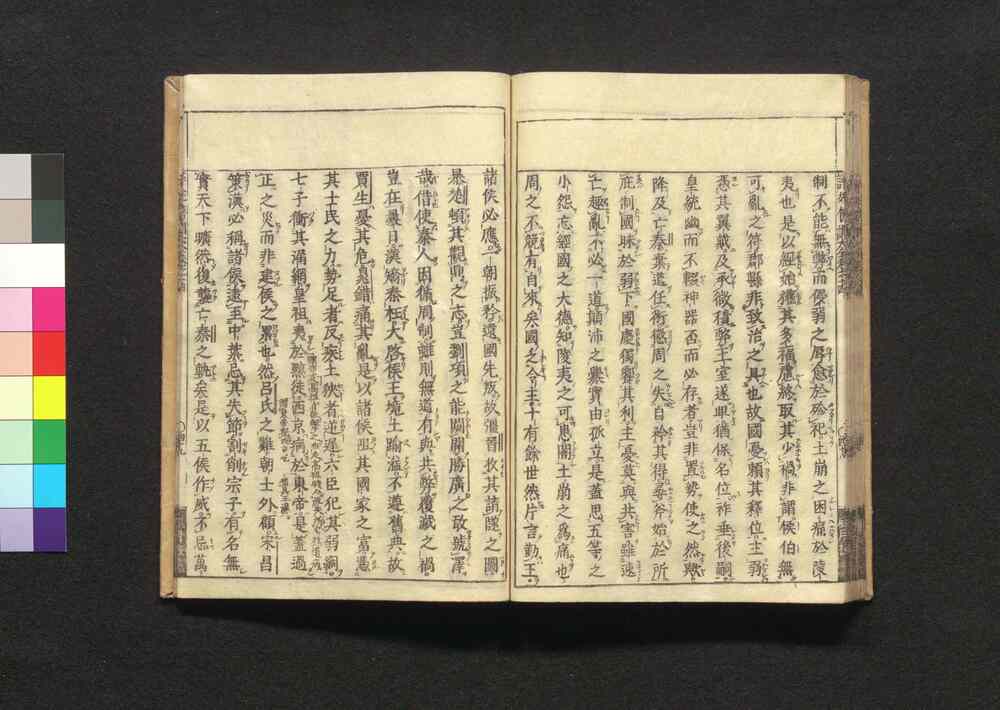 制不能無弊而侵弱之辱愈於殄祀土崩之困痛於陵
夷也是以經始獲其多福慮終取其少禍非謂侯伯無
可亂之符郡縣非致治之具也故國憂賴其釋位主弱
憑其翼戴及承微積弊王室遂卑猶保名位祚垂後嗣
皇統幽而不輟神器否而必存者豈非置勢使之然與
降及亡秦棄道任術懲周之失自矜其得尋斧始於所
庇制國昧於弱下國慶獨饗其利主憂莫與共害雖速
亡趣亂不必一道顛沛之釁實由孤立是蓋思五等之
小怨忘經國之大德知陵夷之可患闇土崩之爲痛也
周之不競有自來矣國乏令主十有餘世然片言勤王
諸侯必應一朝振矜遠國先叛故彊晉收其請隧之圖
暴楚頓其觀鼎之志豈劉項之能闚關勝廣之敢號澤
哉借使秦人因循周制雖則無道有與共弊覆滅之禍
豈在曩日漢矯秦枉大啓侯王境土踰溢不遵舊典故
賈生憂其危晁錯痛其亂是以諸侯阻其國家之富憑
其士民之力勢足者反疾土狹者逆遲六臣犯其弱綱
七子衝其漏網皇祖夷於黥徒西京病於東帝是蓋過
正之災而非建侯之累也然呂氏之難朝士外顧宋昌
策漢必稱諸侯逮至中葉忌其失節割削宗子有名無
實天下曠然復襲亡秦之軌矣是以五侯作威不忌萬